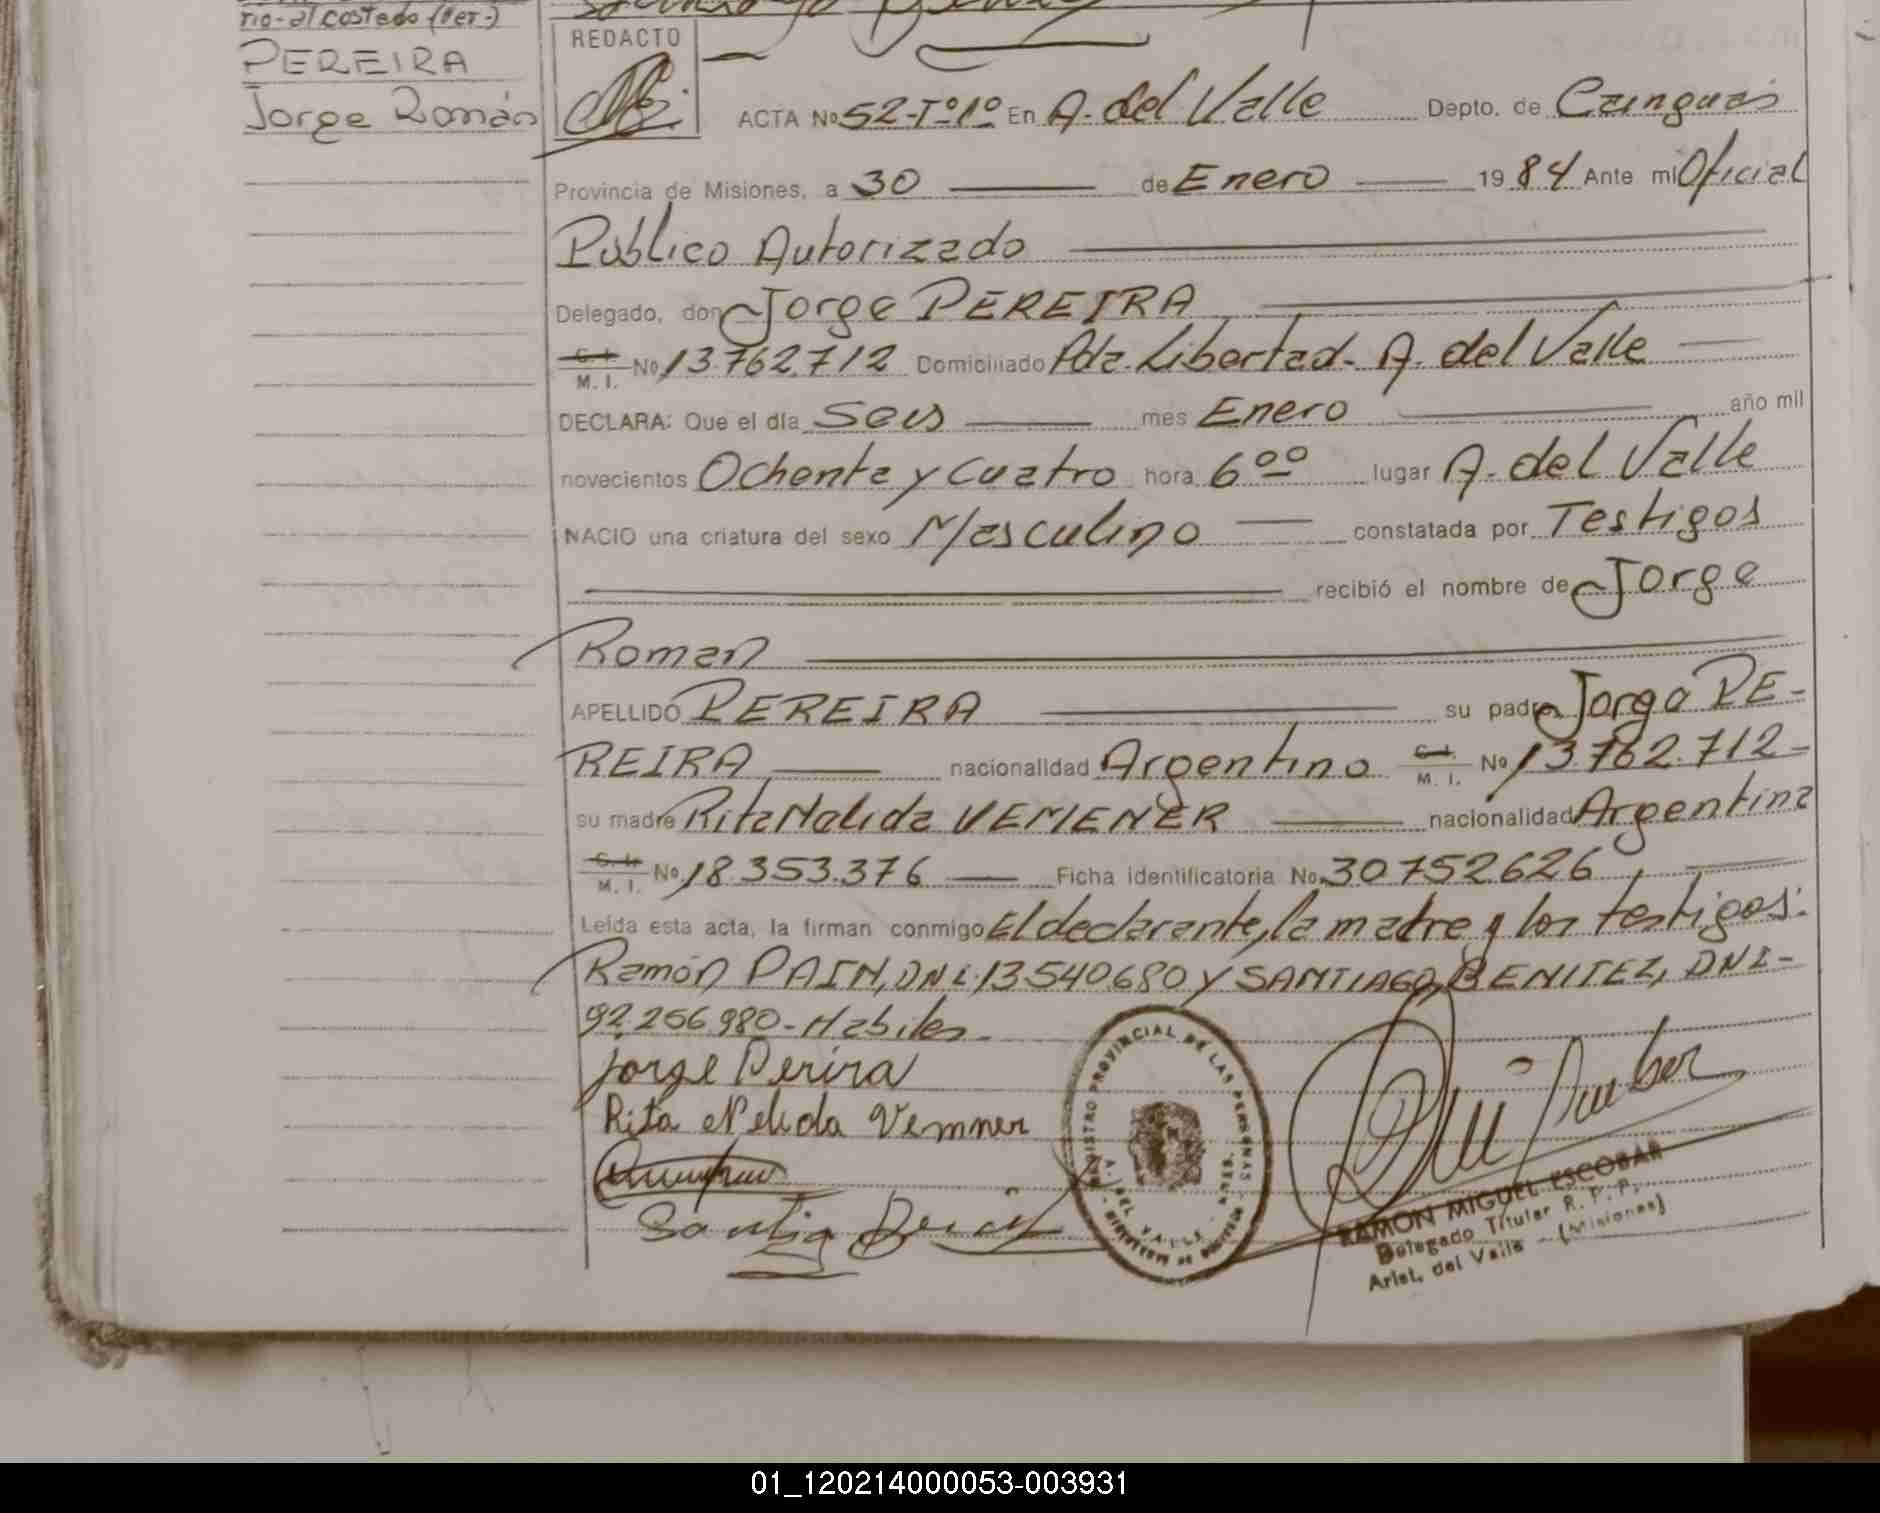 rio-al costado (Ver-)
PEREIRA
Jorge Román
REDACTO
ACTA No 52-Tº1º En A. del Valle Depto. de Cainguás
Provincia de Misiones, a 30 de Enero 1984 Ante mi Oficial
Público Autorizado
Delegado, don Jorge PEREIRA
C. I. M. I. No 13.762.712 Domiciliado Pda. Libertad- A. del Valle
DECLARA: Que el día Seis mes Enero año mil
novecientos Ochenta y Cuatro hora 6ºº lugar A. del Valle
NACIO una criatura del sexo Masculino constatada por Testigos
recibió el nombre de Jorge
Roman
APELLIDO PEREIRA su padre Jorge PE-
REIRA nacionalidad Argentino C. I. M. I. No 13.762.712-
su madre Rita Nelida VEMENER nacionalidad Argentina
C. I. M. I. No 18.353.376 Ficha identificatoria No 30752626
Leída esta acta, la firman conmigo El declarante, la madre y los testigos:
Ramón PAIN, DNI. 13540680 y SANTIAGO BENITEZ, DNI-
92.256.980- Habiles-
Jorge Perira
Rita Nelida Vemner
REGISTRO PROVINCIAL DE LAS PERSONAS
A. DEL VALLE
RAMON MIGUEL ESCOBAR
Delegado Titular R. P. P.
Arist. del Valle - (Misiones)
01_120214000053-003931